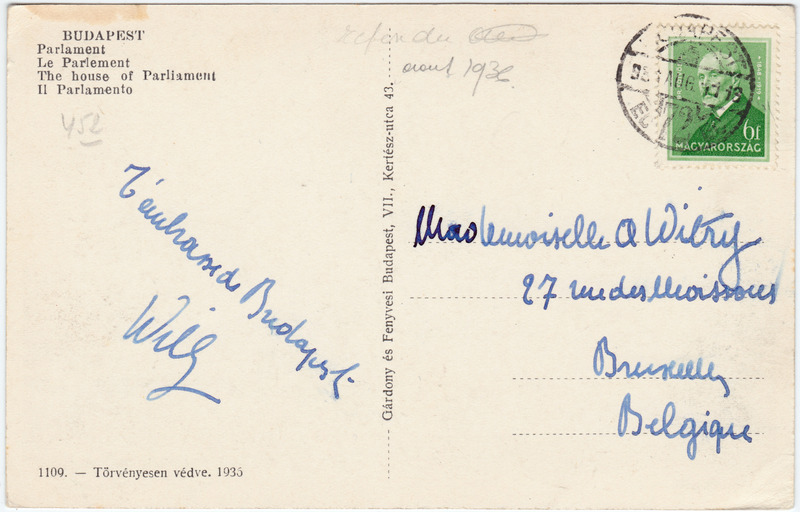 BUDAPEST
Parlament
Le Parlement
The house of Parliament
Il Parlamento
452
T'embrasse de Budapest
Willy
1109. — Törvényesen védve. 1936
Gárdony és Fenyvesi Budapest, VII., Kertész-utca 43.
aout 1936
6f
MAGYARORSZÁG
Mademoiselle A Witry
27 rue des Moissons
Bruxelles
Belgique